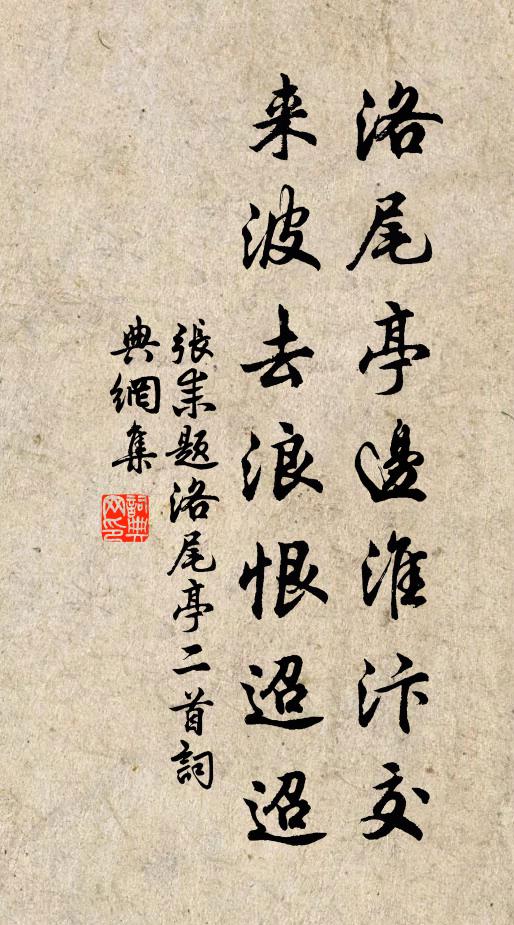 洛尾亭邊淮汴交
来波去浪恨迢迢
張耒題洛尾亭二首詞
典網集
詞典网印